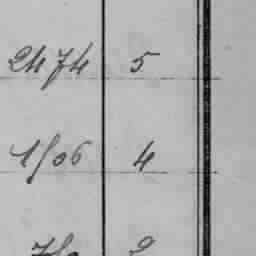 2474 5
1506 4